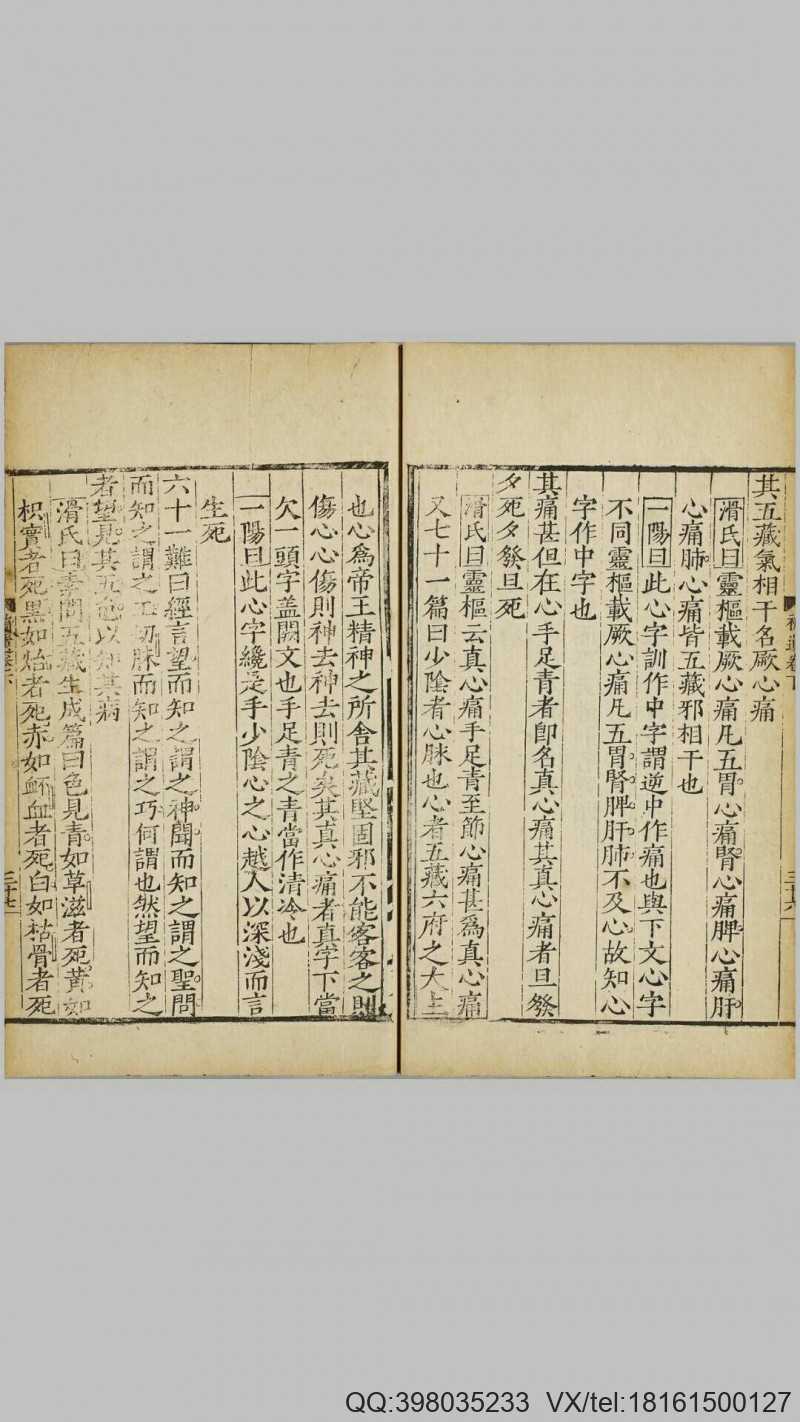 其五藏氣相干名厥心痛
滑氏曰靈樞載厥心痛凡五胃心痛腎心痛脾心痛肝
心痛肺心痛皆五藏邪相干也
一陽曰此心字訓作中字謂逆中作痛也與下文心字
不同靈樞載厥心痛凡五胃腎脾肝肺不及心故知心
字作中字也
其痛甚但在心手足青者即名真心痛其真心痛者旦發
夕死夕發旦死
滑氏曰靈樞云真心痛手足青至節心痛甚爲真心痛
又七十一篇曰少陰者心脉也心者五藏六府之大主
也心爲帝王精神之所舍其藏堅固邪不能客客之則
傷心心傷則神去神去則死矣其真心痛者真字下當
欠一頭字盖闕文也手足青之青當作清冷也
一陽曰此心字纔是手少陰心之心越人以深淺而言
生死
六十一難曰經言望而知之謂之神聞而知之謂之聖問
而知之謂之工切脉而知之謂之巧何謂也然望而知之
者望見其五色以知其病
滑氏曰素問五藏生成篇曰色見青如草滋者死黄如
枳實者死黒如炲者死赤如衃血者死白如枯骨者死
卷下
三十六
三十七
QQ:398035233 VX/tel:18161500127